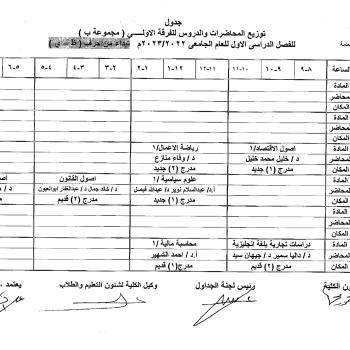 جدول
توزيع المحاضرات والدروس للفرقة الاولـــي ( مجموعة ب )
للفصل الدراسى الاول للعام الجامعى ٢٠٢٣/٢٠٢٢م
الساعة ٨-٩ ٩-١٠ ١٠-١١ ١١-١٢ ١٢-١ ١-٢ ٢-٣ ٣-٤ ٤-٥ ٥-٦
المادة
المحاضر
المكان
المادة اصول الاقتصاد/١ رياضة الاعمال/١
المحاضر د / خليل محمد خليل د / وفاء منازع
المكان مدرج (١) جديد مدرج (٢) جديد
المادة علوم سياسية /١ اصول القانون
المحاضر أ.د/عبدالسلام نوير د/ عبدالله فيصل د/ خالد جمال د/ عبدالغفار ابوالعيون
المكان مدرج (١) جديد مدرج (٢) قديم
المادة دراسات تجارية بلغة انجليزية محاسبة مالية /١
المحاضر د / داليا سمير د / جيهان سيد أ.د / احمد الشهير
المكان مدرج (٢) قديم مدرج (١) جديد
رئيس لجنة الجداول وكيل الكلية لشئون التعليم والطلاب يعتمد ،